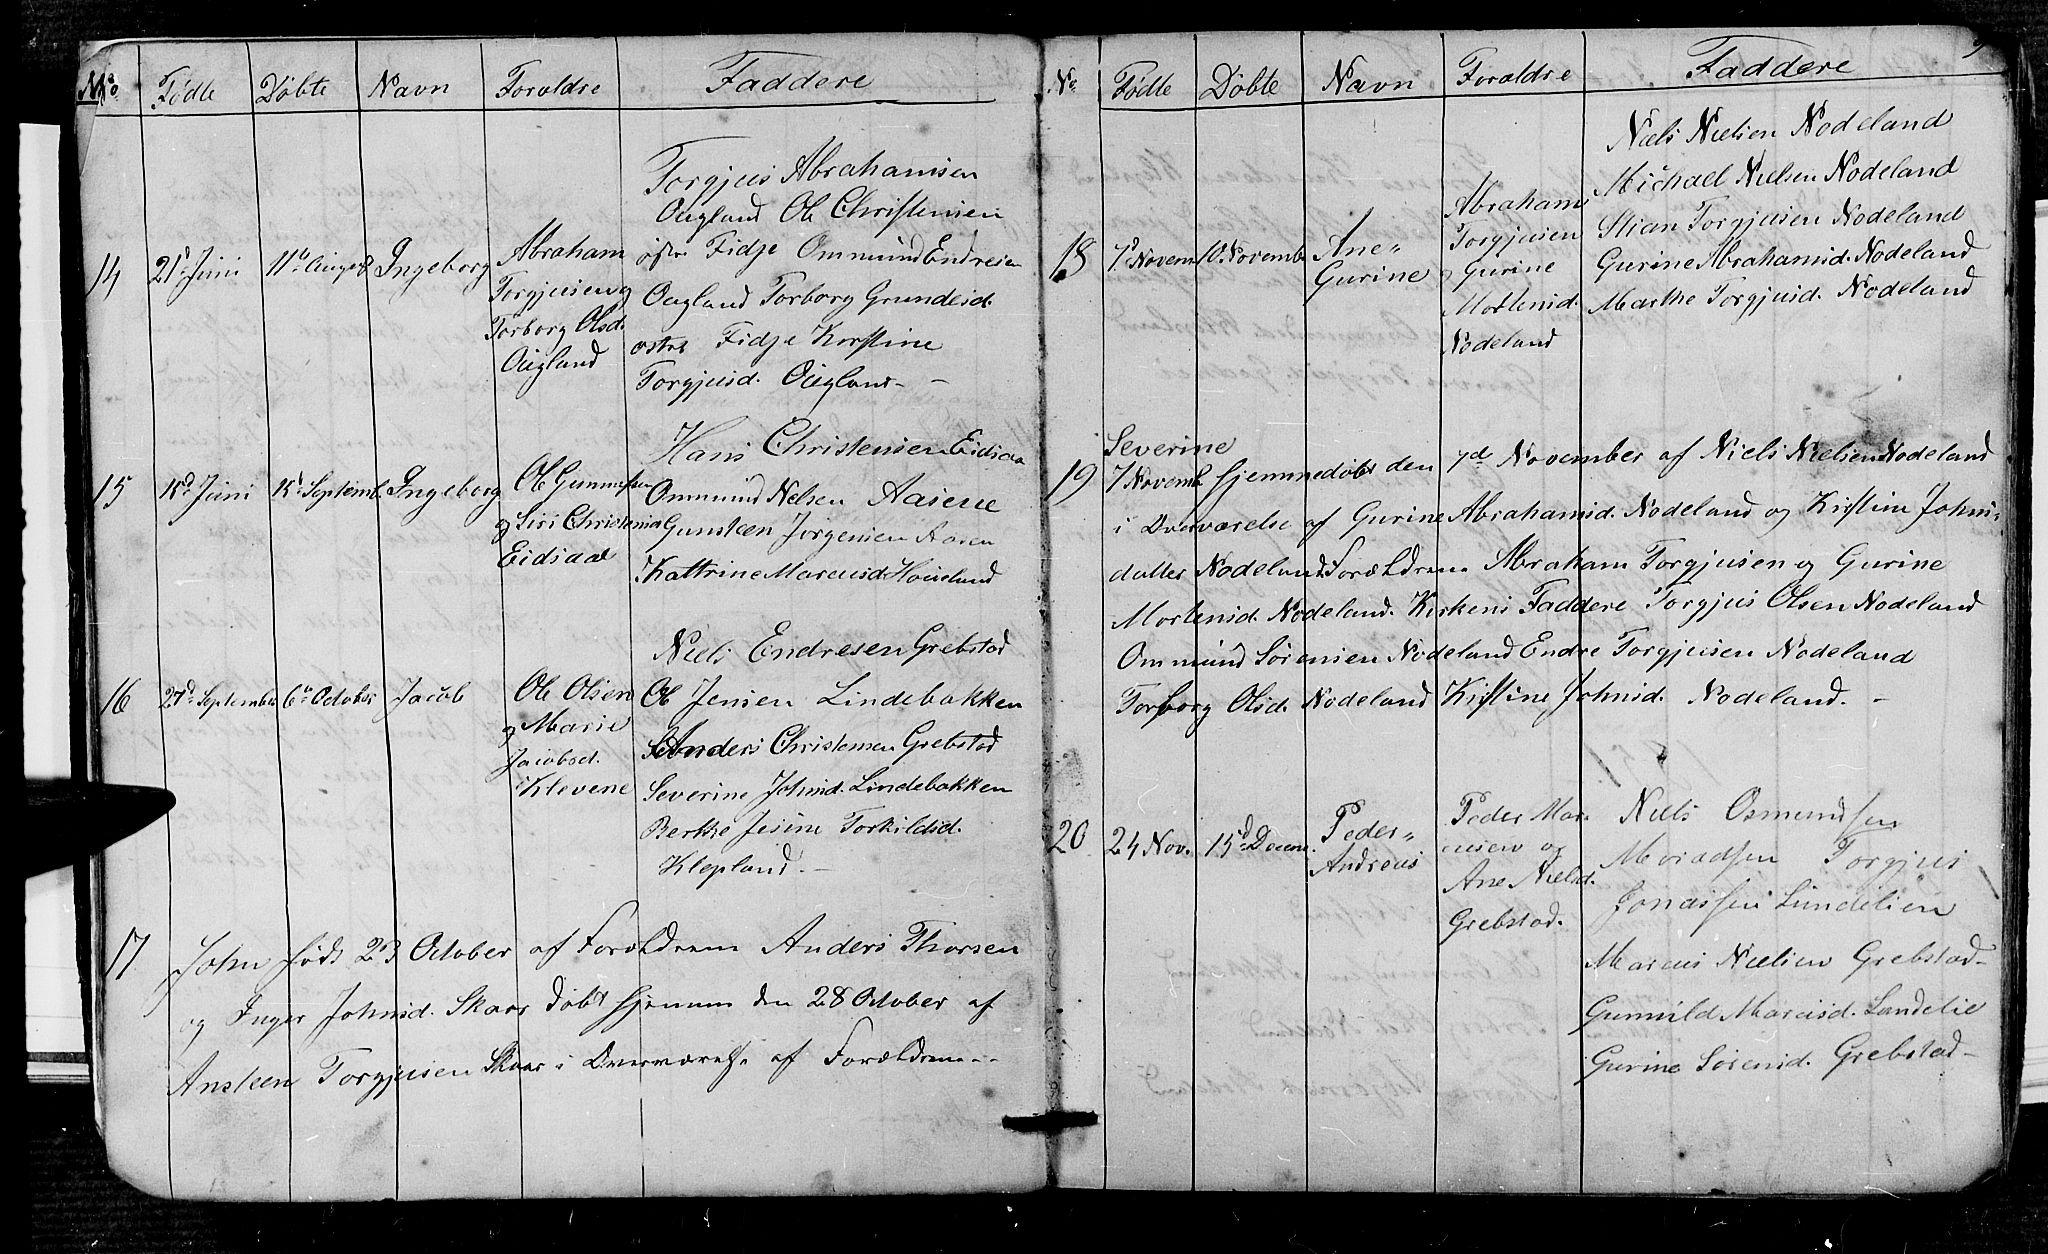 No Fødte Døbte Navn Forældre Faddere
14 21d Juni 11te August Ingeborg
Abraham
Torgjusen og
Torborg Olsd.
Ougland
Torgjus Abrahamsen
Ougland Ole Christensen
østre Fidje Ommund Endresen
Ougland Torborg Grundesd.
østre Fidje Kirstine
Torgjusd. Ougland
15 18d Juni 15d Septemb. Ingeborg
Ole Gunnsten
og Siri Christensd
Eidsaae
Hans Christensen Eidsaa
Ommund Nelsen Aasene
Gunsteen Jørgensen Aasen
Kattrine Marcusd Houeland
16 27d September 6te October Jacob
Ole Olsen
og Marie
Jacobsd.
Klevene
Niels Endresen Grebstad
Ole Jensen Lindebakken
Anders Christensen Grebstad
Severine Johnsd. Lindebakken
Berthe Jesine Torkildsd.
Klepland.
17 John født 23 October af Forældrene Anders Thorsen
og Inger Johnsd. Skaar døbt hjemme den 28 October af
Ansteen Torgjusen Skaar i Overværelse af Forældrene
No Fødte Døbte Navn Forældre Faddere
18 7d Novem 10. Novemb Ane
Gurine
Abraham
Torgjusen
og Gurine
Mortensd.
Nodeland
Niels Nielsen Nodeland
Michael Nielsen Nodeland
Stian Torgjusen Nodeland
Gurine Abrahamsd. Nodeland
Marthe Torgjusd. Nodeland
Severine
19 7 Novemb hjemmedøbt den 7d November af Niels Nielsen Nodeland
i Overværelse af Gurine Abrahamsd. Nodeland og Kirstine Johns-
datter Nodeland Forældrene Abraham Torgjusen og Gurine
Mortensd. Nodeland. Kirkens Faddere Torgjus Olsen Nodeland
Ommund Sørensen Nodeland Endre Torgjusen Nodeland
Torborg Olsd. Nodeland Kirstine Johnsd. Nodeland.
20 24 Nov. 15d Decem. Peder
Andreas
Peder Mar-
cusen og
Ane Nielsd.
Grebstad.
Niels Osmundsen
Torgjus
Jonassen Lundelien
Marcus Nielsen Grebstad
Gunnild Marcusd. Lundelie
Gurine Sørensd. Grebstad